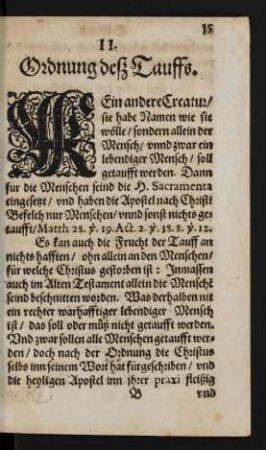 15
II.
Ordnung deß Tauffs.
KEin andere Creatur/
sie habe Namen wie sie
wölle/ sondern allein der
Mensch/ vnnd zwar ein
lebendiger Mensch/ soll
getaufft werden. Dann
fur die Menschen seind die H. Sacramenta
eingesetzt/ vnd haben die Apostel nach Christi
Befelch nur Menschen/ vnnd sonst nichts ge-
taufft/ Matth 28. ℣. 19. Act. 2. ℣. 38. 8. ℣. 12.
Es kan auch die Frucht der Tauff an
nichts hafften/ ohn allein an den Menschen/
für welche Christus gestorben ist: Inmassen
auch im Alten Testament allein die Menschē
seind beschnitten worden. Was derhalben nit
ein rechter warhafftiger lebendiger Mensch
ist/ das soll oder müß nicht getaufft werden.
Vnd zwar sollen alle Menschen getaufft wer-
den/ doch nach der Ordnung die Christus
selbs inn seinem Wort hat fürgeschriben/ vnd
die heyligen Apostel inn jhrer praxi fleißig
B vnd